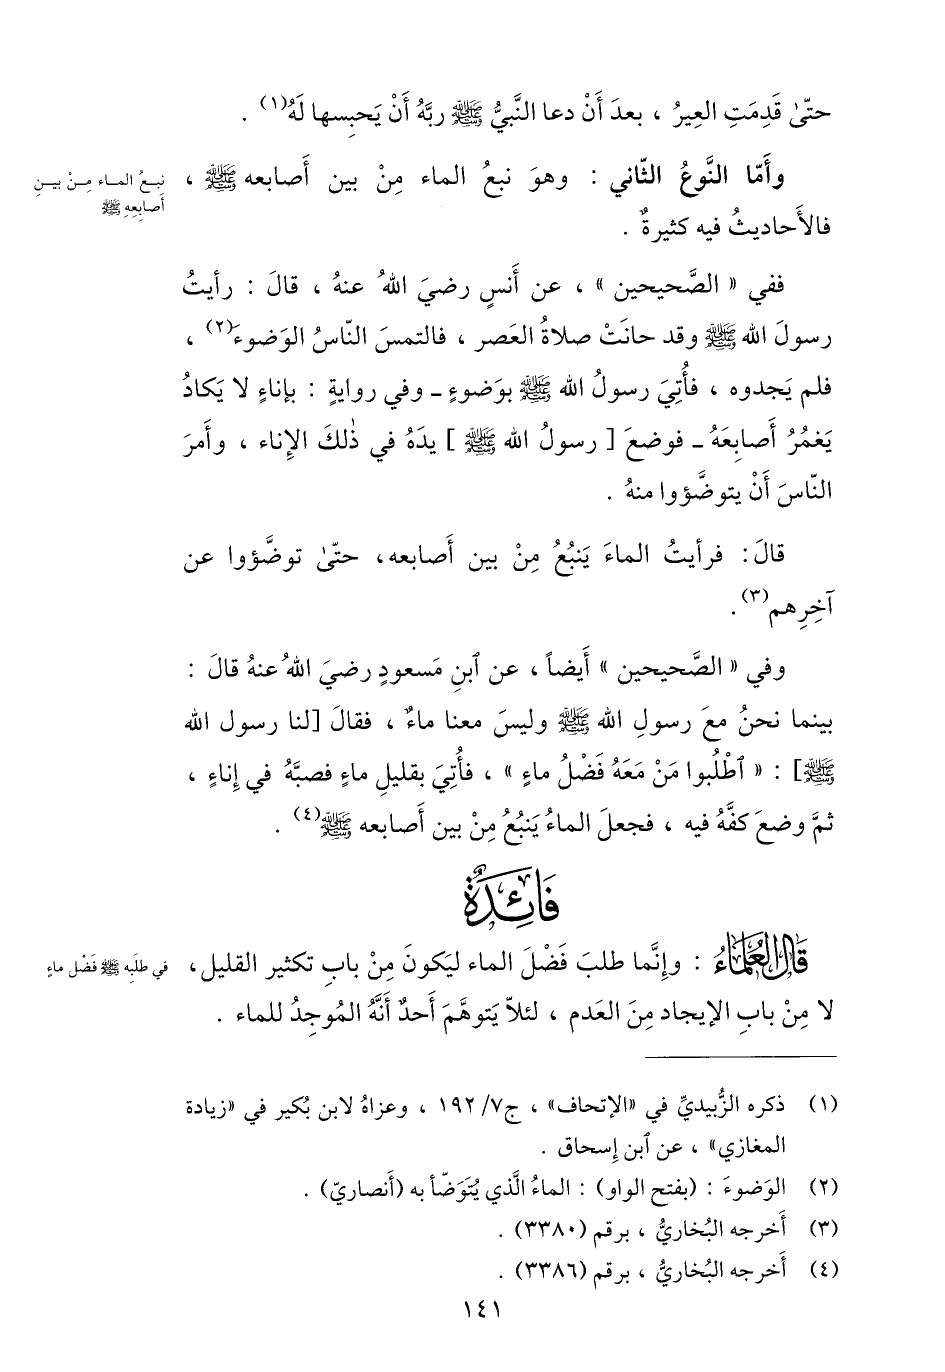 حتّىٰ قَدِمَتِ العِيرُ ، بعدَ أَنْ دعا النَّبيُّ ﷺ ربَّهُ أَنْ يَحبِسها لَهُ(١) .
وأَمّا النَّوعُ الثّاني : وهوَ نبعُ الماء مِنْ بين أَصابعه ﷺ ،
نبـعُ المـاء مِـنْ بيـنِ
أَصابِعِهِ ﷺ
فالأَحاديثُ فيه كثيرةٌ .
ففي « الصَّحيحين » ، عن أَنسٍ رضيَ اللهُ عنهُ ، قالَ : رأيتُ
رسولَ الله ﷺ وقد حانَتْ صلاةُ العَصر ، فالتمسَ النّاسُ الوَضوءَ(٢) ،
فلم يَجدوه ، فأُتِيَ رسولُ الله ﷺ بوَضوءٍ ـ وفي روايةٍ : بإناءٍ لا يَكادُ
يَغمُرُ أَصابِعَهُ ـ فوضعَ [ رسولُ الله ﷺ ] يدَهُ في ذٰلكَ الإِناء ، وأَمرَ
النّاسَ أَنْ يتوضَّؤوا منهُ .
قالَ: فرأيتُ الماءَ يَنبُعُ مِنْ بين أَصابعه، حتّىٰ توضَّؤوا عن
آخِرِهم(٣).
وفي « الصَّحيحين » أَيضاً ، عن ٱبنِ مَسعودٍ رضيَ اللهُ عنهُ قالَ :
بينما نحنُ معَ رسولِ الله ﷺ وليسَ معنا ماءٌ ، فقالَ [لنا رسول الله
ﷺ] : « ٱطْلُبوا مَنْ مَعَهُ فَضْلُ ماءٍ » ، فأُتِيَ بقليلِ ماءٍ فصبَّهُ في إِناءٍ ،
ثمَّ وضعَ كفَّهُ فيه ، فجعلَ الماءُ يَنبُعُ مِنْ بين أَصابعه ﷺ(٤) .
فَائِدَةٌ
قَالَ العُلَمَاءُ : وإِنَّما طلبَ فَضْلَ الماء ليَكونَ مِنْ بابِ تكثير القليل،
في طلَبِه ﷺ فَضْل ماءٍ
لا مِنْ بابِ الإيجاد مِنَ العَدم ، لئلاّ يَتوهَّمَ أَحدٌ أَنَّهُ المُوجِدُ للماء .
(١) ذكره الزُّبيديِّ في «الإتحاف» ، ج٧/ ١٩٢ ، وعزاهُ لابن بُكير في «زيادة
المغازي» ، عن ٱبن إِسحاق .
(٢) الوَضوءَ : (بفتح الواو) : الماءُ الَّذي يُتَوَضّأ به (أَنصاريّ) .
(٣) أَخرجه البُخاريُّ ، برقم (٣٣٨٠) .
(٤) أَخرجه البُخاريُّ ، برقم (٣٣٨٦) .
١٤١